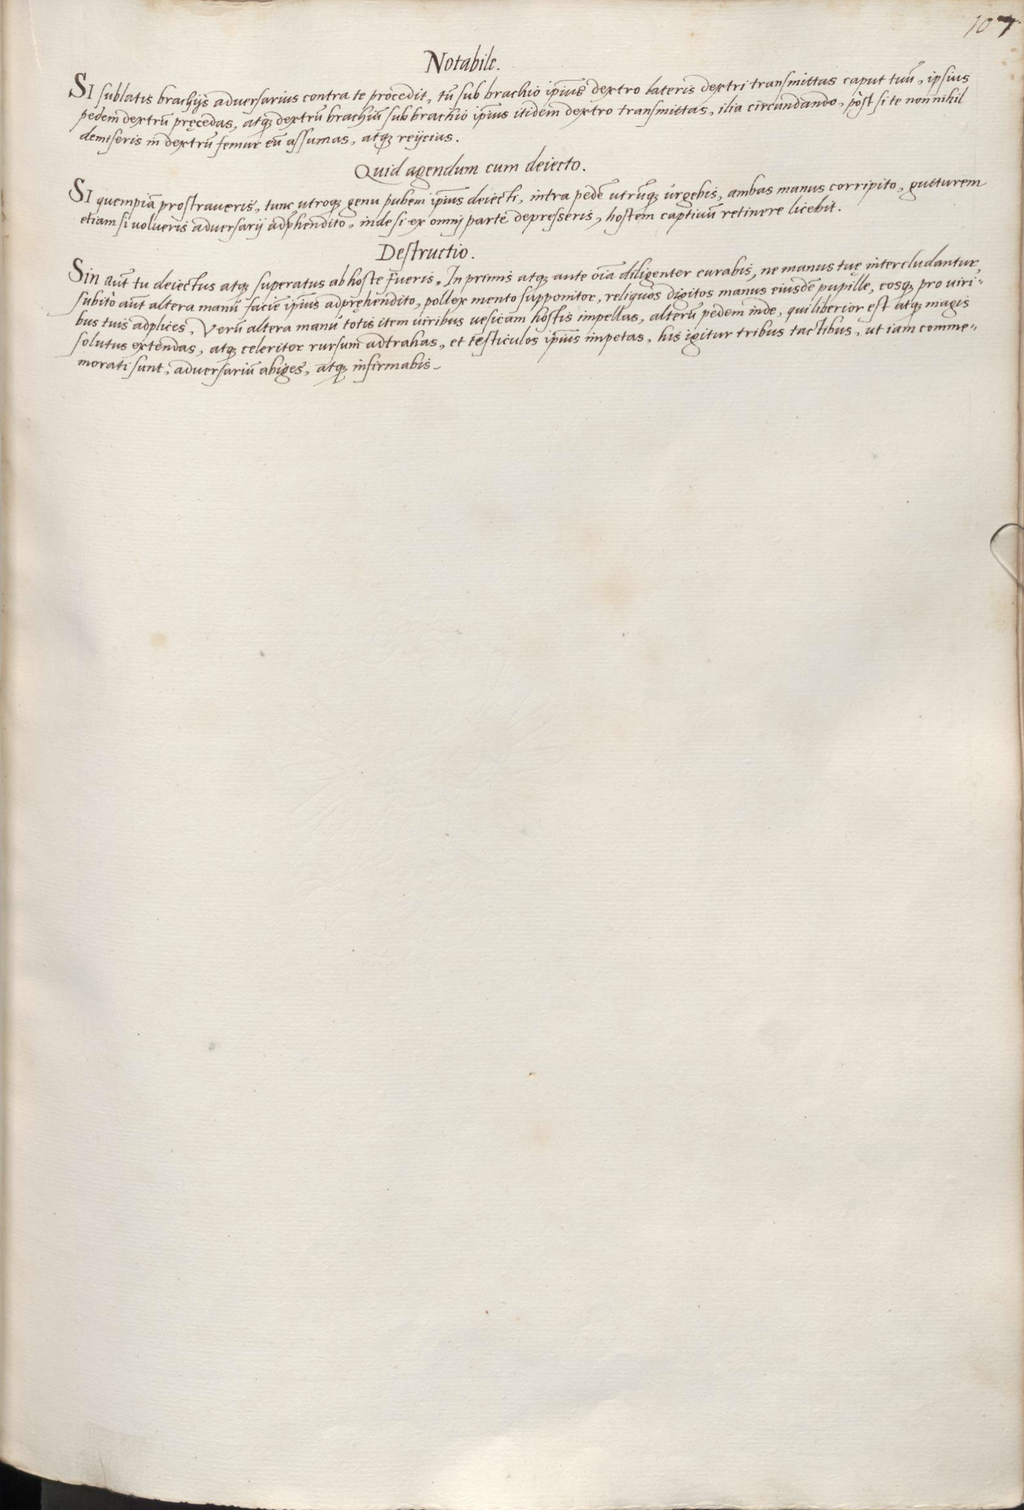 107
Notabile.
SI sublatis brachijs adversarius contra te procedit, tũ sub brachio ipsius dextro lateris dextri transmittas caput tuũ, ipsius
pedem dextrũ pręcedas, atq; dextrũ brachiũ sub brachio ipsius itidem dextro transmittas, ilia circundando, pòst si te non nihil
demiseris in dextrũ femur eũ assumas, atq; reijcias.
Quid agendum cum deiecto.
SI quempiã prostraveris, tunc utroq; genu pubem ipsius deiecti, intra pedẽ utrũq; urgebis, ambas manus corripito, gutturem
etiam si volueris adversarij adphendito, inde si ex omnj partẽ depresseris, hostem captivũ retinere licebit.
Destructio.
Sin aũt tu deiectus atq; superatus ab hoste fueris, In primis atq; ante oĩa diligenter curabis, ne manus tuę intercludantur,
subitò aũt altera manũ faciẽ ipsius adpręhendito, pollex mento supponitor, reliquos digitos manus eiusdẽ pupillę, eosq; pro viri-
bus tuis adplices, Verũ altera manũ totis item viribus vesicam hostis impellas, alterũ pedem inde, qui liberior est atq; magis
solutus extendas, atq; celeriter rursum adtrahas, et testiculos ipsius impetas, his igitur tribus tactibus, ut iam comme-
morati sunt, adversariũ abiges, atq; infirmabis.